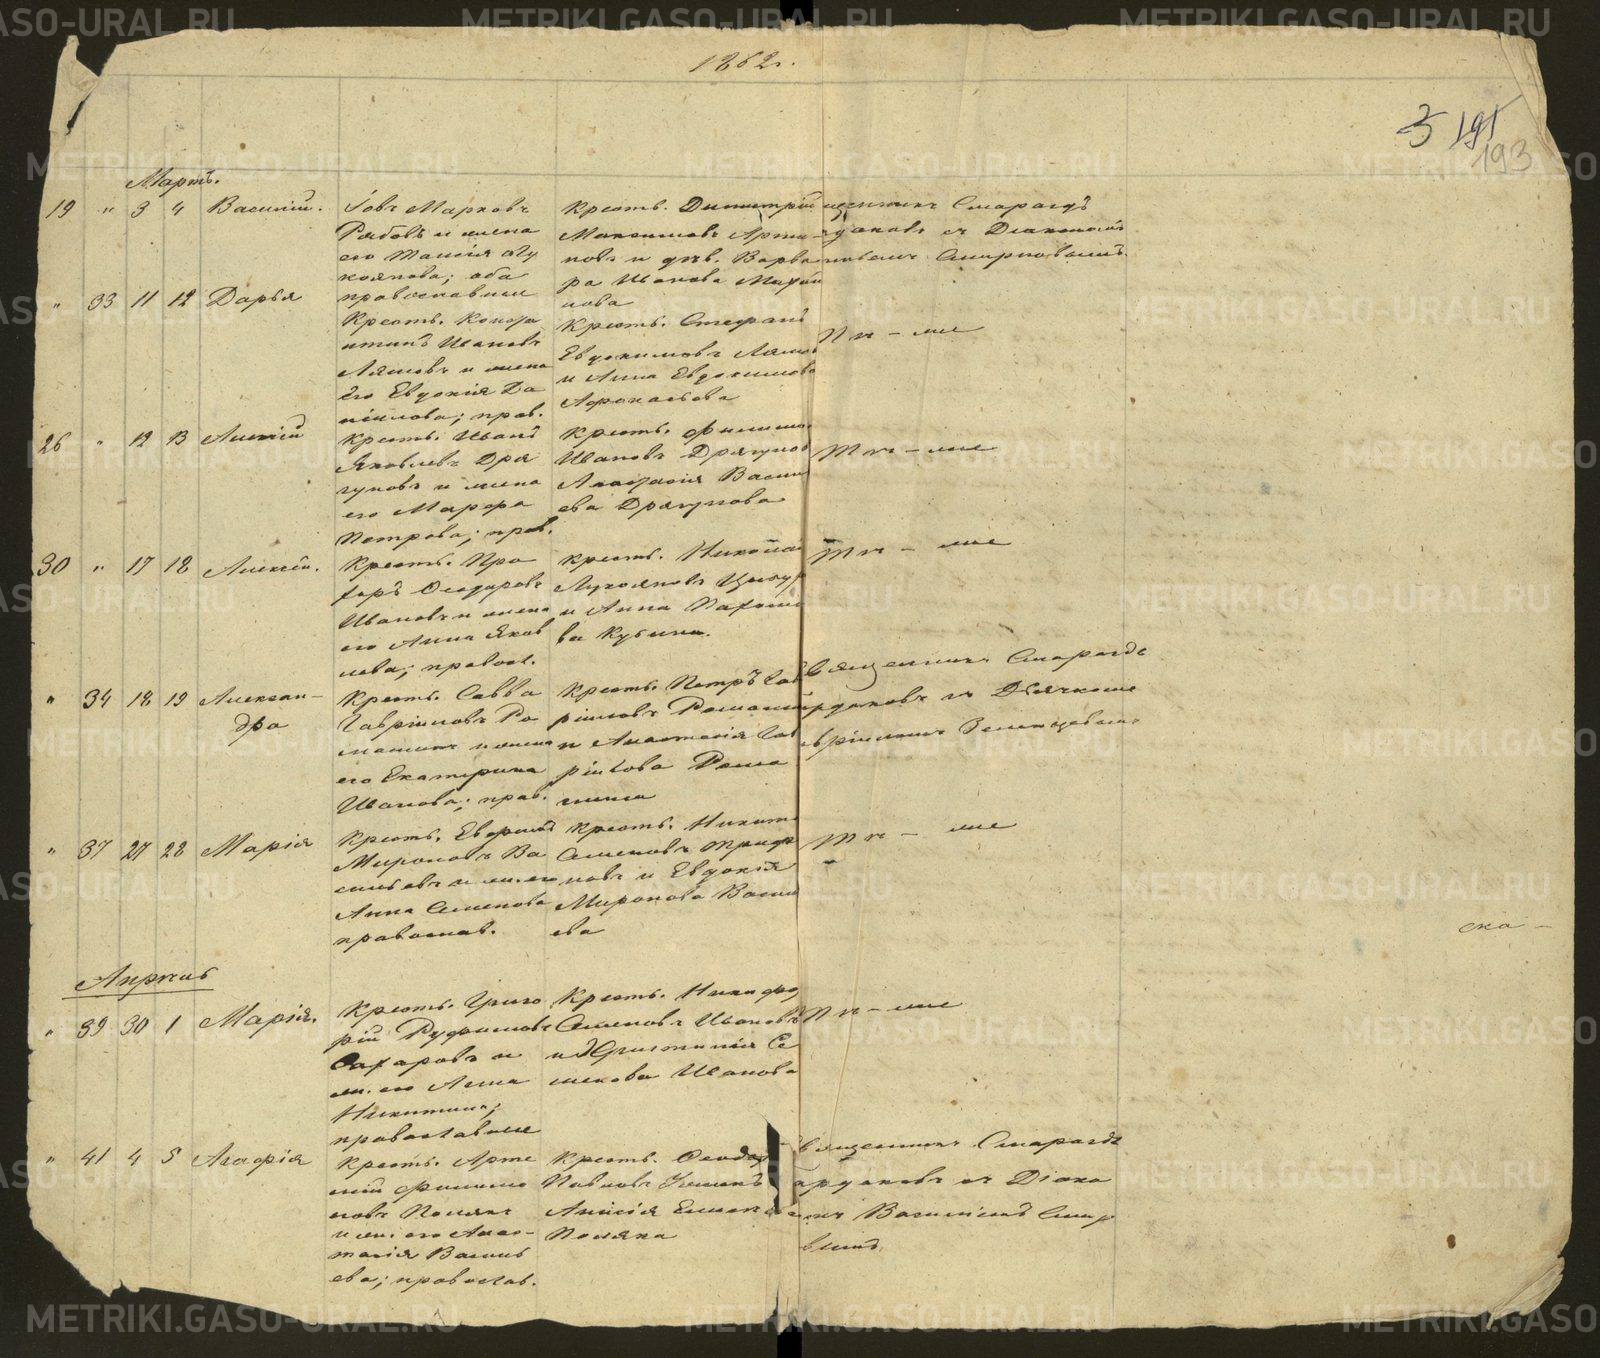 1862г.
5 191
193
Мартъ.
19 " 3 4 Василій.
Іовъ Марковъ
Рябовъ и жена
его Таисія Лу
коянова; оба
православные
Крест. Димитрій
Максимовъ Арта
новъ и дѣв. Варва
ра Иванова
нова
щенникъ Смарагдъ
удаковъ съ Діакономъ
Смирновымъ.
" 33 11 12 Дарья
Крест. Конста
нтинъ Ивановъ
Лямовъ и жена
его Евдокія Да
нилова; прав.
Крест. Стефанъ
Евдокимовъ Лямов
и Анна Евдокимова
Афонасьева
Тѣ-же
26 " 12 13 Алексій
Крест. Иванъ
Яковлевъ Дря
гуновъ и жена
его Марфа
Петрова; прав.
Крест. Филипп
Ивановъ Дрягунов
Анастасія Васил
ева Дрягунова
Тѣ-же
30 " 17 18 Алексій.
Крест. Про
хоръ Ѳеодоровъ
Ивановъ и жена
его Анна Яков
лева; правосл.
Крест. Николай
Лукояновъ
и Анна Пахомо
ва Кубина.
Тѣ-же
" 34 18 19 Алексан-
дра
Крест. Савва
Гавріиловъ Ро
манинъ и жена
его Екатерина
Иванова; прав.
Крест. Петръ Гав
ріиловъ Романин
и Анастасія Гав
ріилова Рома
нина
вященникъ Смарагдъ
рдаковъ съ Дьячкомъ
вріиломъ
" 37 27 28 Марія
Крест. Евфимій
Мироновъ Ва
сильевъ и ж. его
Анна Семенова
православ.
Крест. Никита
Семеновъ Триф
новъ и Евдокія
Миронова Васил
ева
Тѣ-же
ска -
Апрѣль
" 39 30 1 Марія.
Крест. Григо
рій Руфимовъ
Сахаровъ и
ж. его Анна
Никитина;
православные
Крест. Никифор
Семеновъ Ивановъ
и Христинія Се
менова Иванова
Тѣ-же
" 41 4 5 Агафія
Крест. Арте
мій Филимо
новъ Полякъ
и ж. его Анас-
тасія Василь
ева; православ.
Крест. Ѳеодор
Павловъ
Анисія
Поляка
вященникъ Смарагдъ
урдаковъ съ Діако
номъ Василіемъ Смир
вымъ.
METRIKI.GASO-URAL.RU